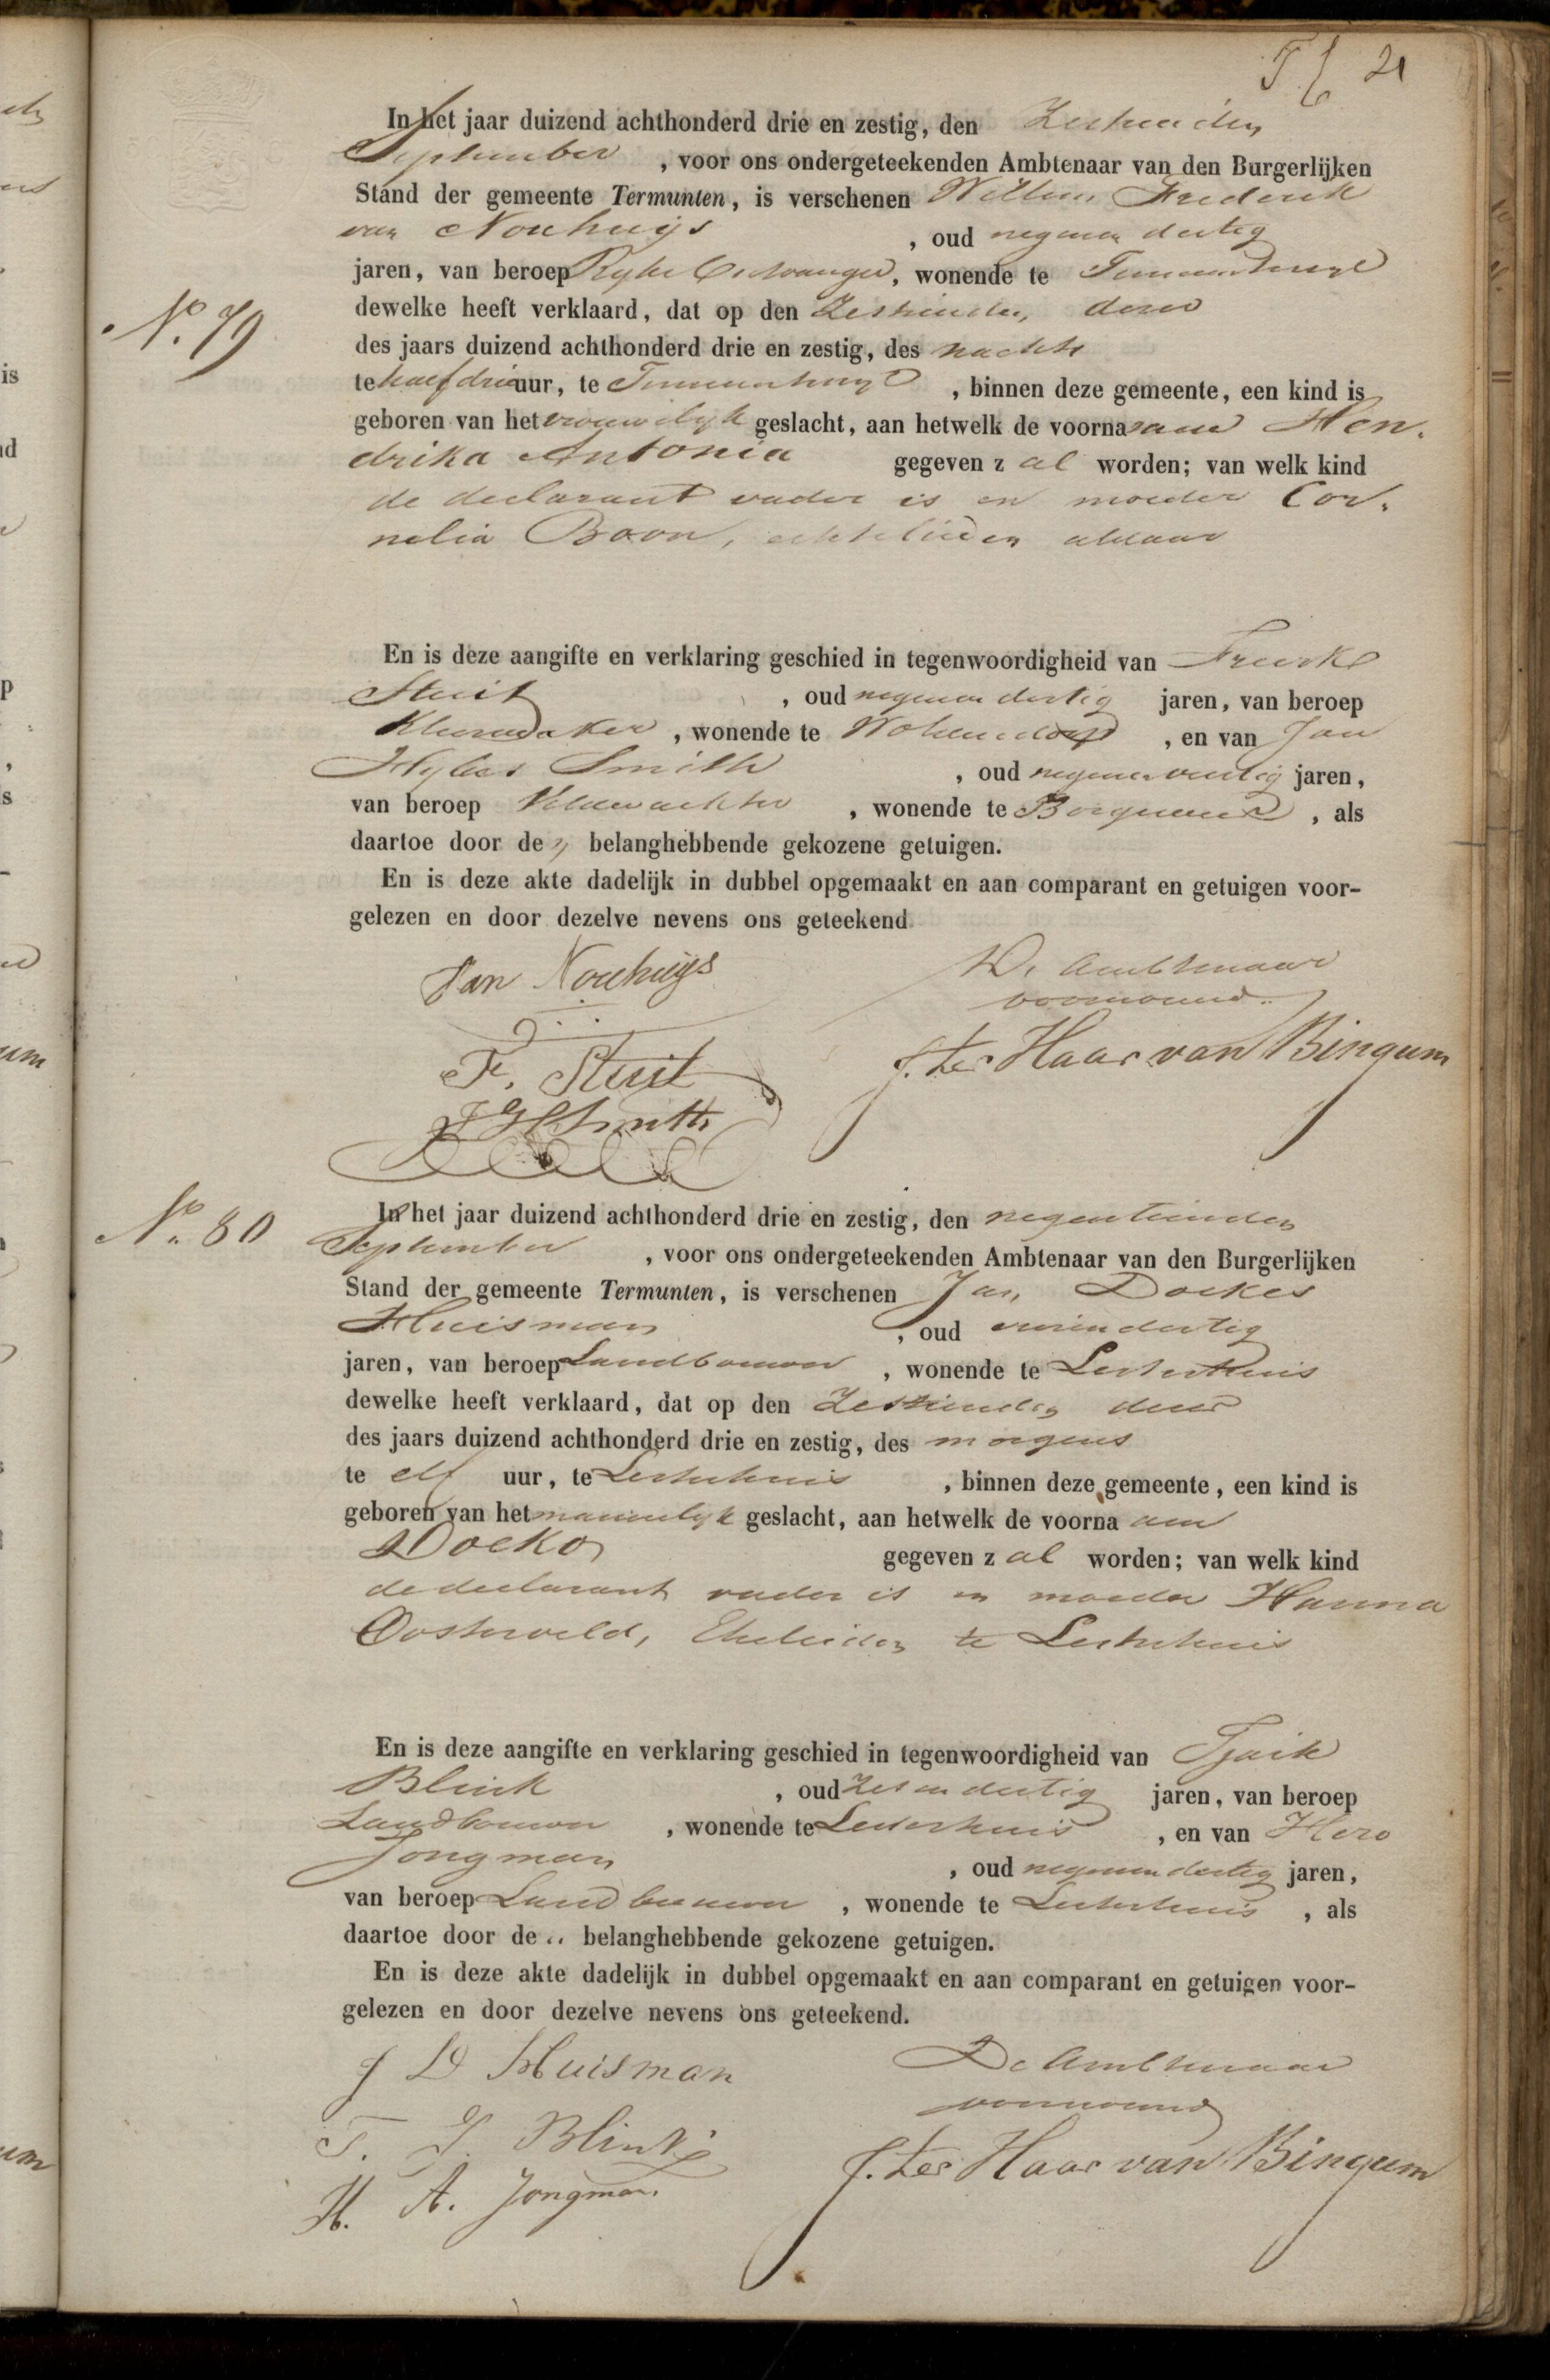 21
In het jaar duizend achthonderd drie en zestig, den Zestienden
September, voor ons ondergeteekenden Ambtenaar van den Burgerlijken
Stand der gemeente Termunten, is verschenen Willem Frederik
van Nouhuijs, oud negenendertig
jaren, van beroep Ryks Ontvanger, wonende te Termunterzyl
N.° 79
dewelke heeft verklaard, dat op den Zestienden dezer
des jaars duizend achthonderd drie en zestig, des nachts
te half drie uur, te Termunterzyl, binnen deze gemeente, een kind is
geboren van het vrouwelijk geslacht, aan hetwelk de voornaam Hen-
drika Antonia gegeven zal worden; van welk kind
de declarant vader is en moeder Cor-
nelia Boon, echtelieden aldaar
En is deze aangifte en verklaring geschied in tegenwoordigheid van Freerk
Stuit, oud negenendertig jaren, van beroep
Kleermaker, wonende te Woldendorp, en van Jan
Smith, oud negenenveertig jaren,
van beroep Veldwachter, wonende te Borgsweer, als
daartoe door de belanghebbende gekozene getuigen.
En is deze akte dadelijk in dubbel opgemaakt en aan comparant en getuigen voor-
gelezen en door dezelve nevens ons geteekend.
Van Nouhuijs
De Ambtenaar
voornoemd.
F. Stuit
J. ter Haar van Bingum
J H Smith
N.° 80
In het jaar duizend achthonderd drie en zestig, den negentienden
September, voor ons ondergeteekenden Ambtenaar van den Burgerlijken
Stand der gemeente Termunten, is verschenen Jan Doekes
Huisman, oud vierendertig
jaren, van beroep Landbouwer, wonende te Lesterhuis
dewelke heeft verklaard, dat op den Zestienden dezer
des jaars duizend achthonderd drie en zestig, des morgens
te elf uur, te Lesterhuis, binnen deze gemeente, een kind is
geboren van het mannelijk geslacht, aan hetwelk de voornaam
Doeko gegeven zal worden; van welk kind
de declarant vader is en moeder Hanna
Oosterveld, Ehelieden te Lesterhuis
En is deze aangifte en verklaring geschied in tegenwoordigheid van Tjark
Blink, oud Zesendertig jaren, van beroep
Landbouwer, wonende te Lesterhuis, en van Hero
Jongman, oud negenendertig jaren,
van beroep Landbouwer, wonende te Lesterhuis, als
daartoe door de belanghebbende gekozene getuigen.
En is deze akte dadelijk in dubbel opgemaakt en aan comparant en getuigen voor-
gelezen en door dezelve nevens ons geteekend.
J D Huisman
De Ambtenaar
voornoemd
T. J. Blink
J. ter Haar van Bingum
H. A. Jongman